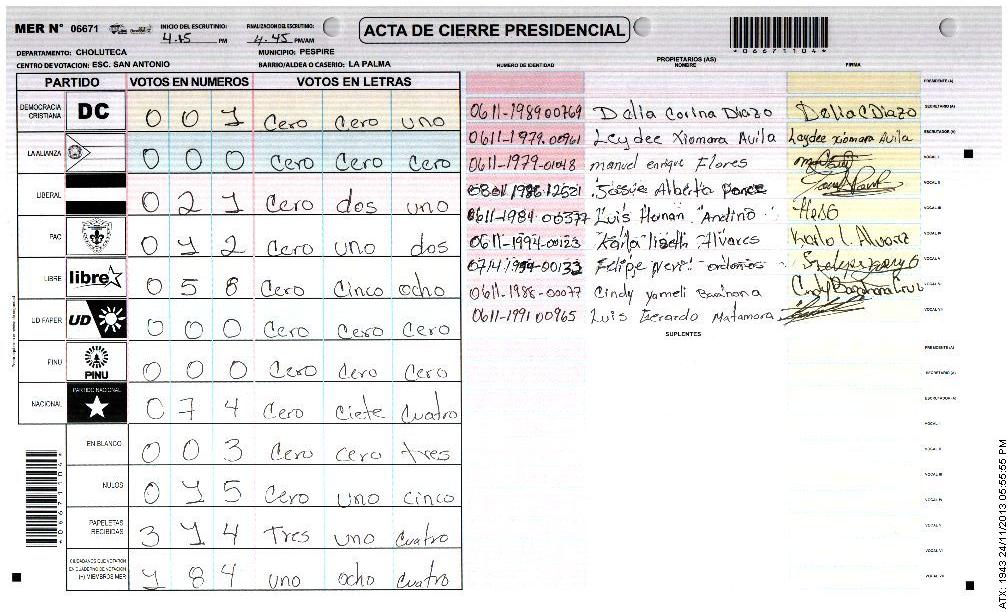 MER N° 06671
INICIO DEL ESCRUTINIO: 4.15 PM
FINALIZACION DEL ESCRUTINIO: 4.45 PM/AM
ACTA DE CIERRE PRESIDENCIAL
*06671104*
DEPARTAMENTO: CHOLUTECA
MUNICIPIO: PESPIRE
CENTRO DE VOTACION: ESC. SAN ANTONIO
BARRIO/ALDEA O CASERIO: LA PALMA
PARTIDO VOTOS EN NUMEROS VOTOS EN LETRAS
DEMOCRACIA CRISTIANA DC 0 0 1 Cero Cero uno
LA ALIANZA 0 0 0 Cero Cero Cero
LIBERAL 0 2 1 Cero dos uno
PAC 0 1 2 Cero uno dos
LIBRE libre 0 5 8 Cero Cinco ocho
UD FAPER UD 0 0 0 Cero Cero Cero
PINU PINU 0 0 0 Cero Cero Cero
NACIONAL PARTIDO NACIONAL 0 7 4 Cero Ciete Cuatro
EN BLANCO 0 0 3 Cero cero tres
NULOS 0 1 5 Cero uno cinco
PAPELETAS RECIBIDAS 3 1 4 Tres uno cuatro
CIUDADANOS QUE VOTARON EN CUADERNO DE VOTACION (+) MIEMBROS MER 1 8 4 uno ocho cuatro
*06671104*
PROPIETARIOS (AS)
NUMERO DE IDENTIDAD NOMBRE FIRMA
PRESIDENTE(A)
0611-1989 00769 Delia Corina Diazo Delia C Diazo SECRETARIO (A)
0611-1979-00961 Leydee Xiomara Avila Laydee xiomara Avila ESCRUTADOR (A)
0611-1979-01048 manuel enrique Flores VOCAL I
Josue Alberto Ponce VOCAL II
0611-1984-00377 Luis Hernan Andino VOCAL III
0611-1994-00123 Karla lizeth Alvares Karla l. Alvarez VOCAL IV
Felipe VOCAL V
0611-1988-00077 Cindy yameli Baranona VOCAL VI
0611-1991 00965 Luis Gerardo Matamora VOCAL VII
SUPLENTES
PRESIDENTE(A)
SECRETARIO (A)
ESCRUTADOR (A)
VOCAL I
VOCAL II
VOCAL III
VOCAL IV
VOCAL V
VOCAL VI
VOCAL VII
ATX: 1943 24/11/2013 05:55:55 PM